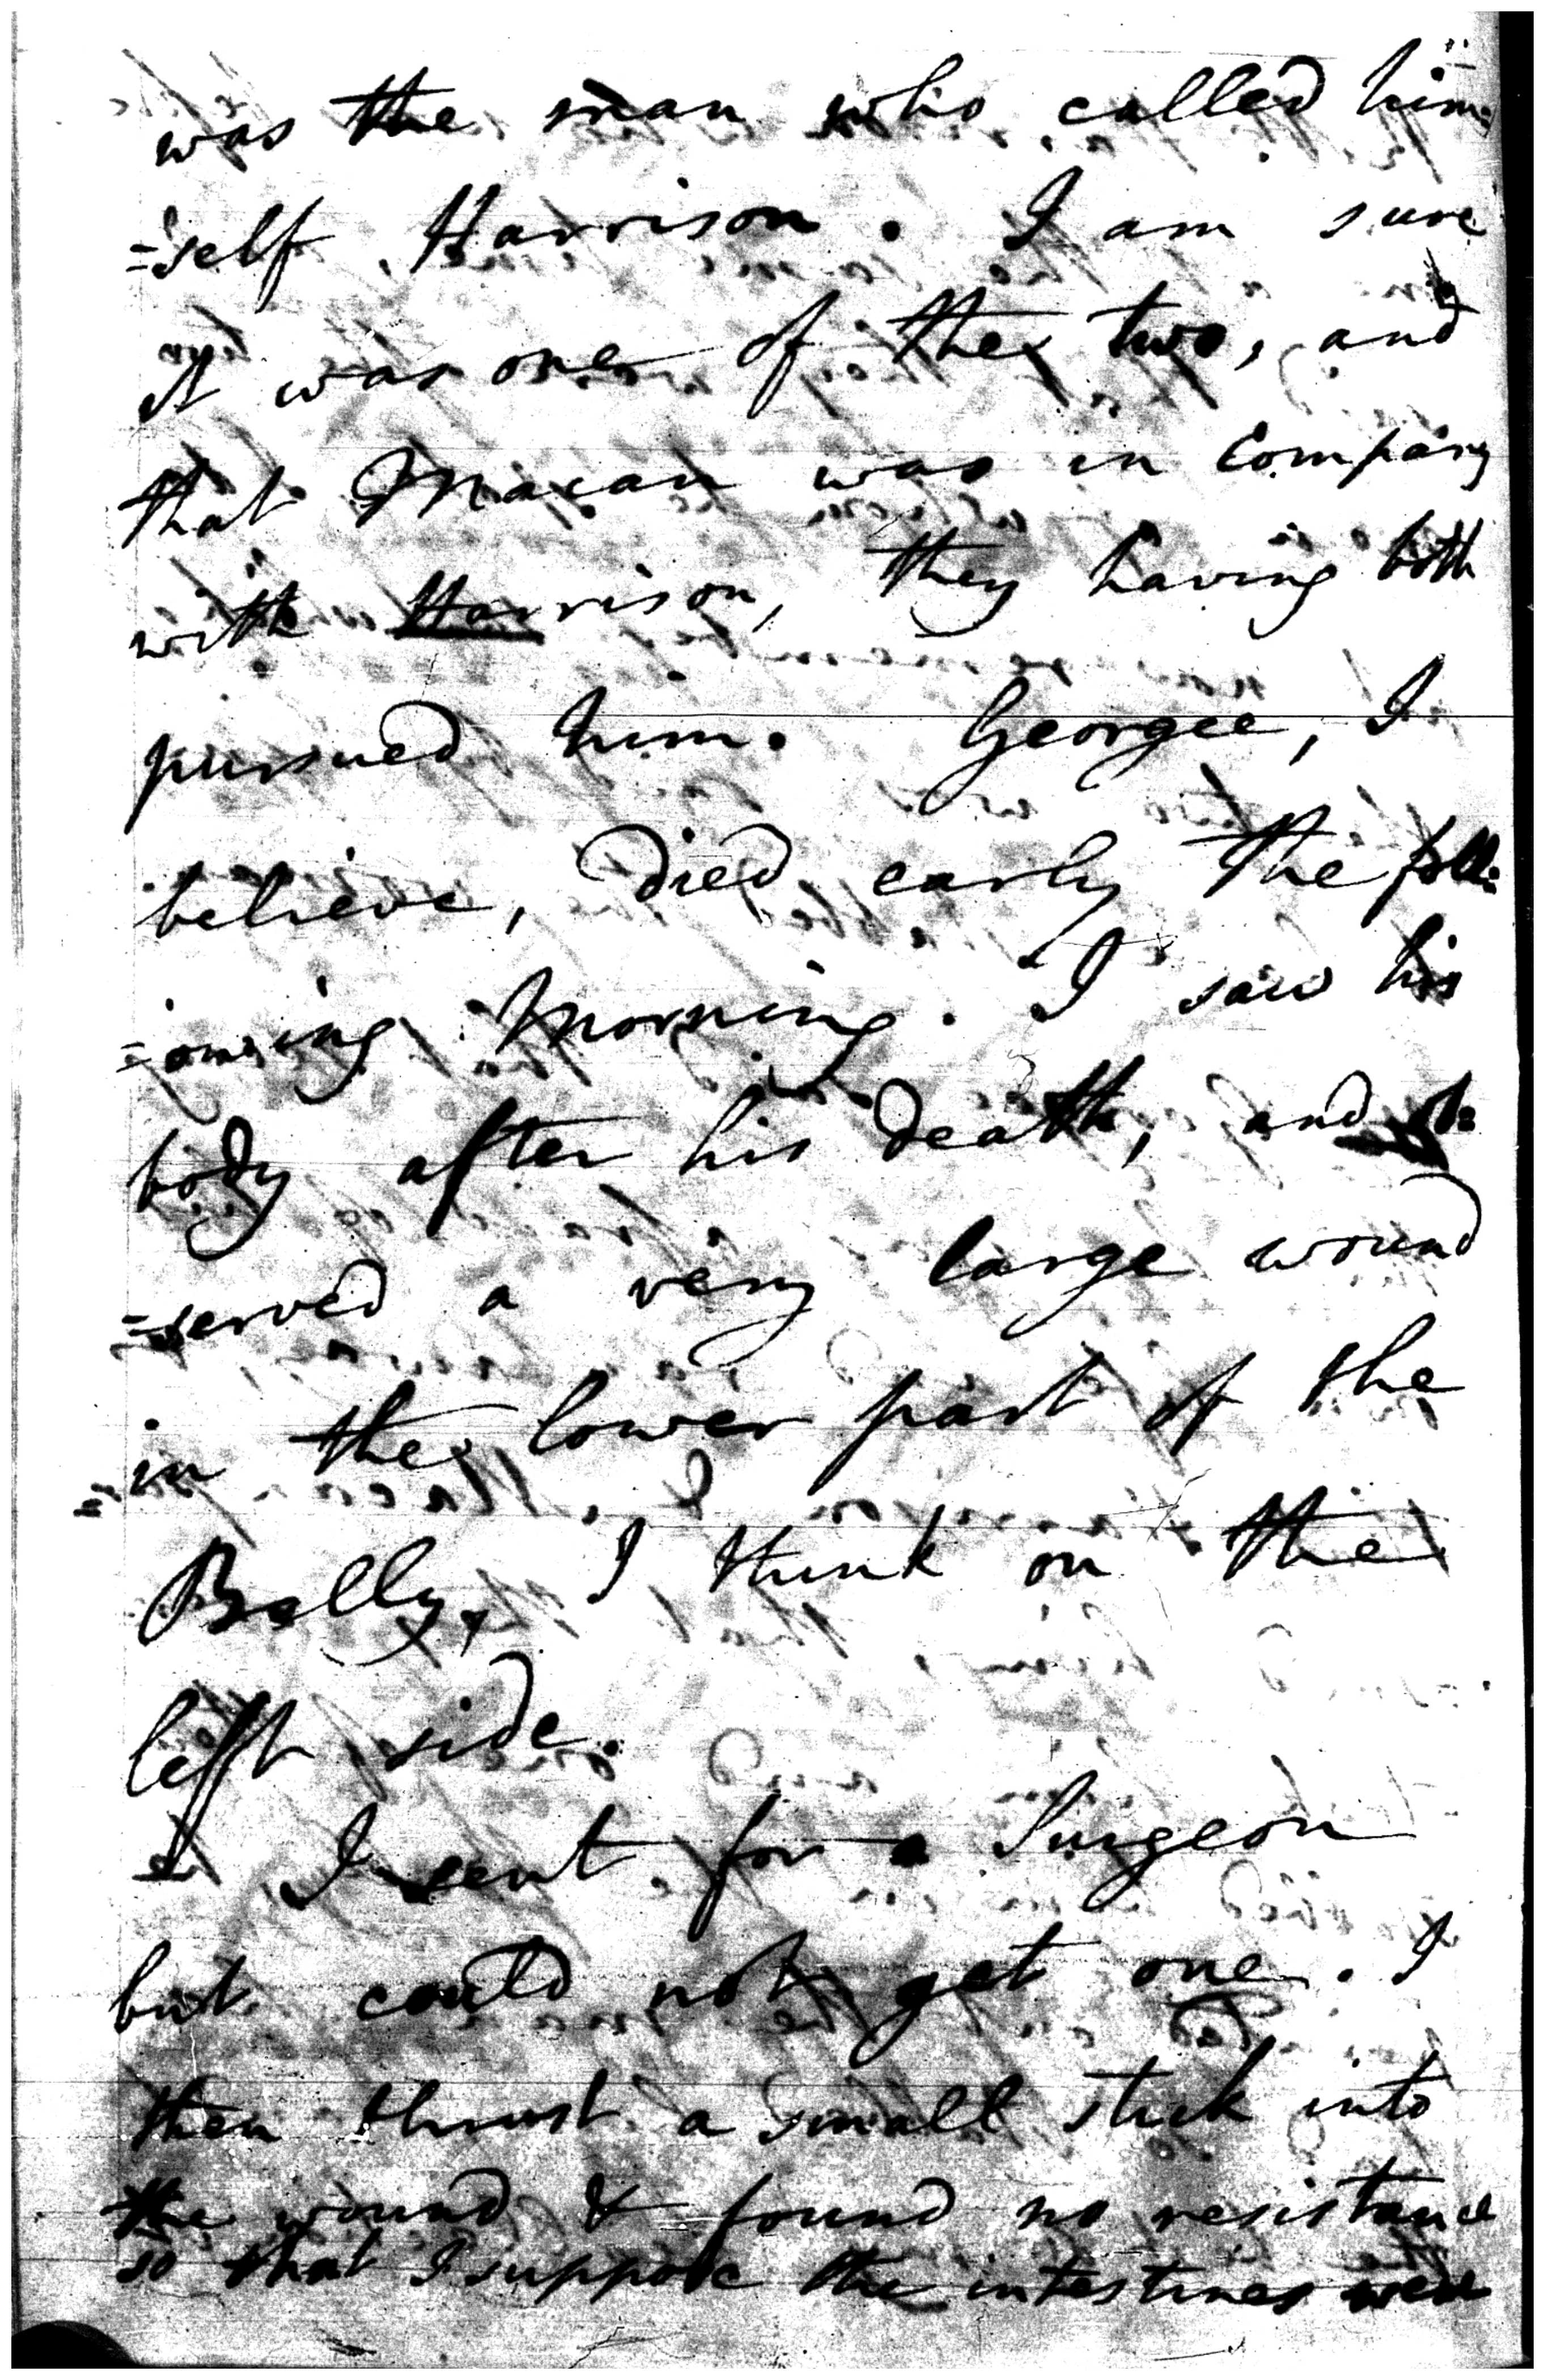 was the man who called him=
=self Harrison. I am sure
it was one of the two, and
that Macan was in Company
with Harrison, they having both
pursued him. Georgee, I
believe, died early the foll=
=owing Morning. I saw his
body after his death, and ob=
=served a very large wound
in the lower part of the
Belly, I think on the
left side.
I sent for a Surgeon
but could not get one. I
then thrust a small stick into
the wound & found no resistance
so that I suppose the intestines were